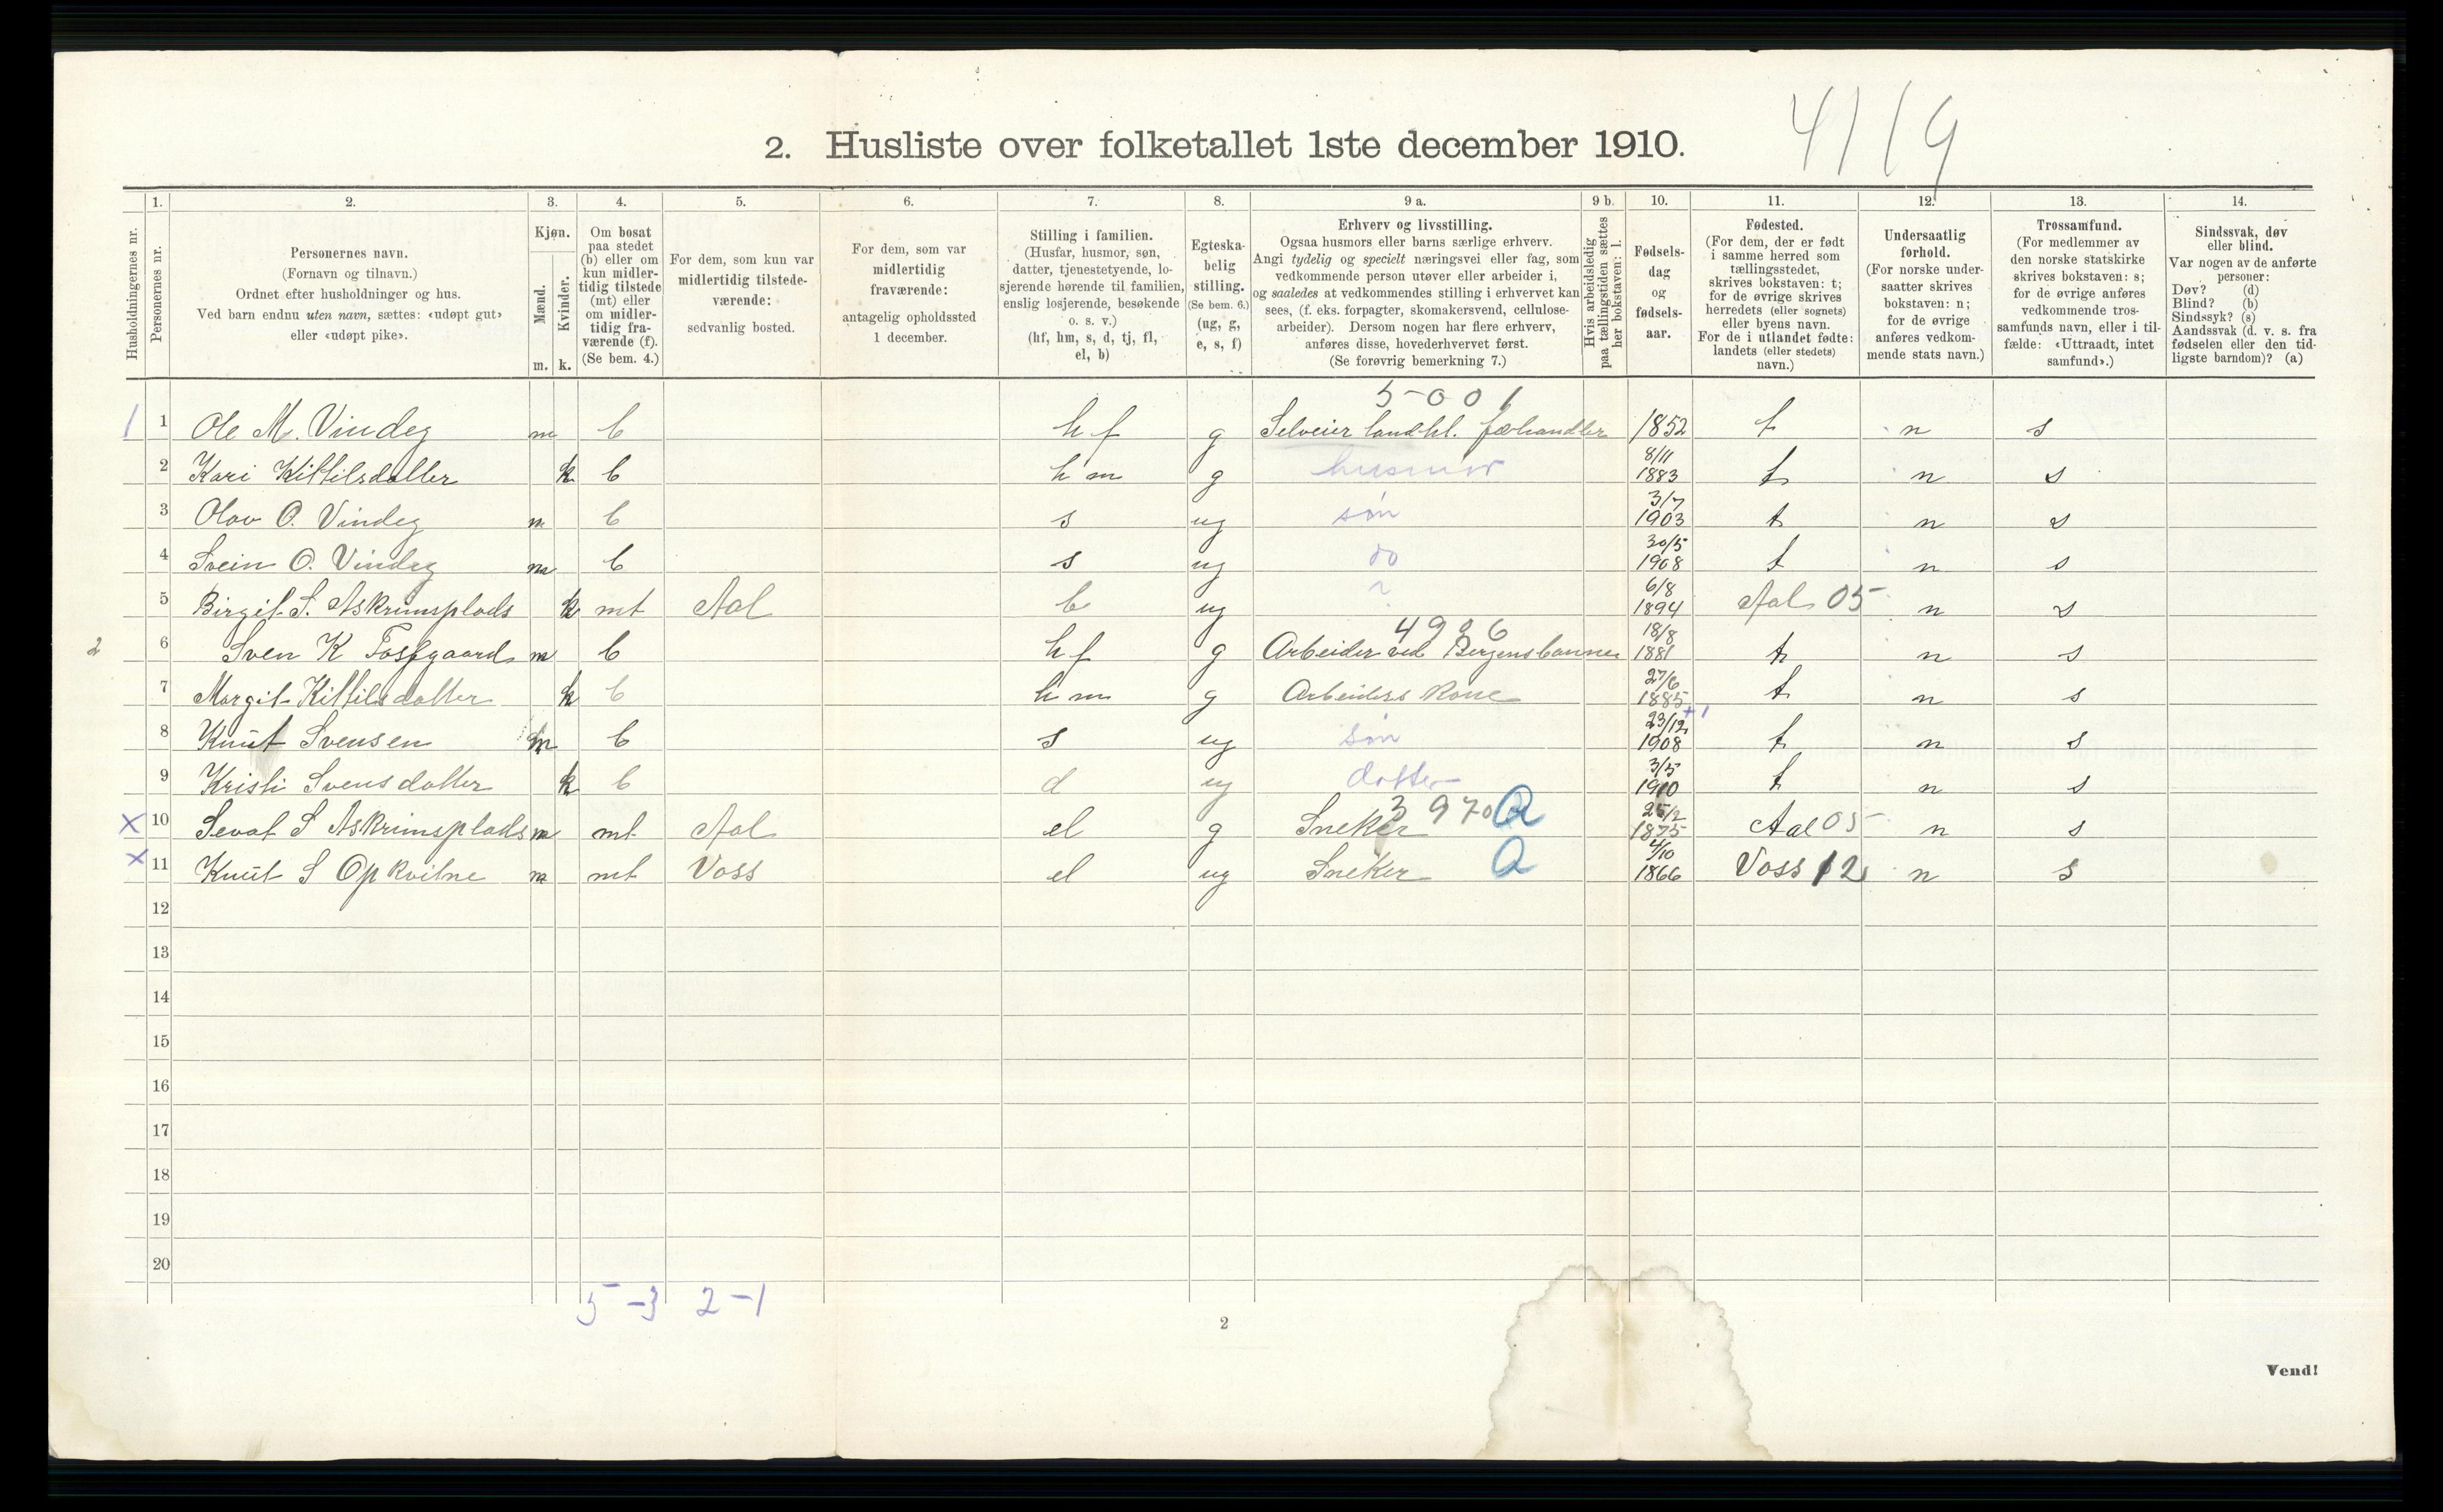 4119
2. Husliste over folketallet 1ste december 1910.
Husholdningernes nr.
1. Personernes nr.
2. Personernes navn.
(Fornavn og tilnavn.)
Ordnet efter husholdninger og hus.
Ved barn endnu uten navn, sættes: «udøpt gut»
eller «udøpt pike».
3. Kjøn.
Mænd. m.
Kvinder. k.
4. Om bosat
paa stedet
(b) eller om
kun midler-
tidig tilstede
(mt) eller
om midler-
tidig fra-
værende (f).
(Se bem. 4.)
5. For dem, som kun var
midlertidig tilstede-
værende:
sedvanlig bosted.
6. For dem, som var
midlertidig
fraværende:
antagelig opholdssted
1 december.
7. Stilling i familien.
(Husfar, husmor, søn,
datter, tjenestetyende, lo-
sjerende hørende til familien,
enslig losjerende, besøkende
o. s. v.)
(hf, hm, s, d, tj, fl,
el, b)
8. Egteska-
belig
stilling.
(Se bem. 6.)
(ug, g,
e, s, f)
9 a. Erhverv og livsstilling.
Ogsaa husmors eller barns særlige erhverv.
Angi tydelig og specielt næringsvei eller fag, som
vedkommende person utøver eller arbeider i,
og saaledes at vedkommendes stilling i erhvervet kan
sees, (f. eks. forpagter, skomakersvend, cellulose-
arbeider). Dersom nogen har flere erhverv,
anføres disse, hovederhvervet først.
(Se forøvrig bemerkning 7.)
9 b. Hvis arbeidsledig
paa tællingstiden sættes
her bokstaven: l.
10. Fødsels-
dag
og
fødsels-
aar.
11. Fødested.
(For dem, der er født
i samme herred som
tællingsstedet,
skrives bokstaven: t;
for de øvrige skrives
herredets (eller sognets)
eller byens navn.
For de i utlandet fødte:
landets (eller stedets)
navn.)
12. Undersaatlig
forhold.
(For norske under-
saatter skrives
bokstaven: n;
for de øvrige
anføres vedkom-
mende stats navn.)
13. Trossamfund.
(For medlemmer av
den norske statskirke
skrives bokstaven: s;
for de øvrige anføres
vedkommende tros-
samfunds navn, eller i til-
fælde: «Uttraadt, intet
samfund».)
14. Sindssvak, døv
eller blind.
Var nogen av de anførte
personer:
Døv? (d)
Blind? (b)
Sindssyk? (s)
Aandssvak (d. v. s. fra
fødselen eller den tid-
ligste barndom)? (a)
5-001
1 1 Ole M. Vindeg m b hf g Selveier landhl. fæhandler 1852 t n s
2 Kari Kittilsdatter k b hm g husmor 8/11 1883 t n s
3 Olav O. Vindeg m b s ug søn 3/7 1903 t n s
4 Svein O. Vindeg m b s ug do 30/5 1908 t n s
5 Birgit S. Askrimsplads k mt Aal b ug ? 6/8 1894 Aal 05 n s
2 6 Sven K Tosfgaard m b hf g Arbeider ved Bergensbannen 18/8 1881 t n s
7 Margit Kittilsdatter k b hm g Arbeiders kone 27/6 1885 t n s
8 Knut Svensen m b s ug søn 23/12 1908 +1 t n s
9 Kristi Svensdatter k b d ug datter 3/5 1910 t n s
3970
x 10 Sevat S Askrimsplads m mt Aal el g Sneker Q 25/2 1875 Aal 05 n s
x 11 Knut S Opkvitne m mt Voss el ug Sneker Q 4/10 1866 Voss 12 n s
12
13
14
15
16
17
18
19
20
5-3 2-1
2
Vend!